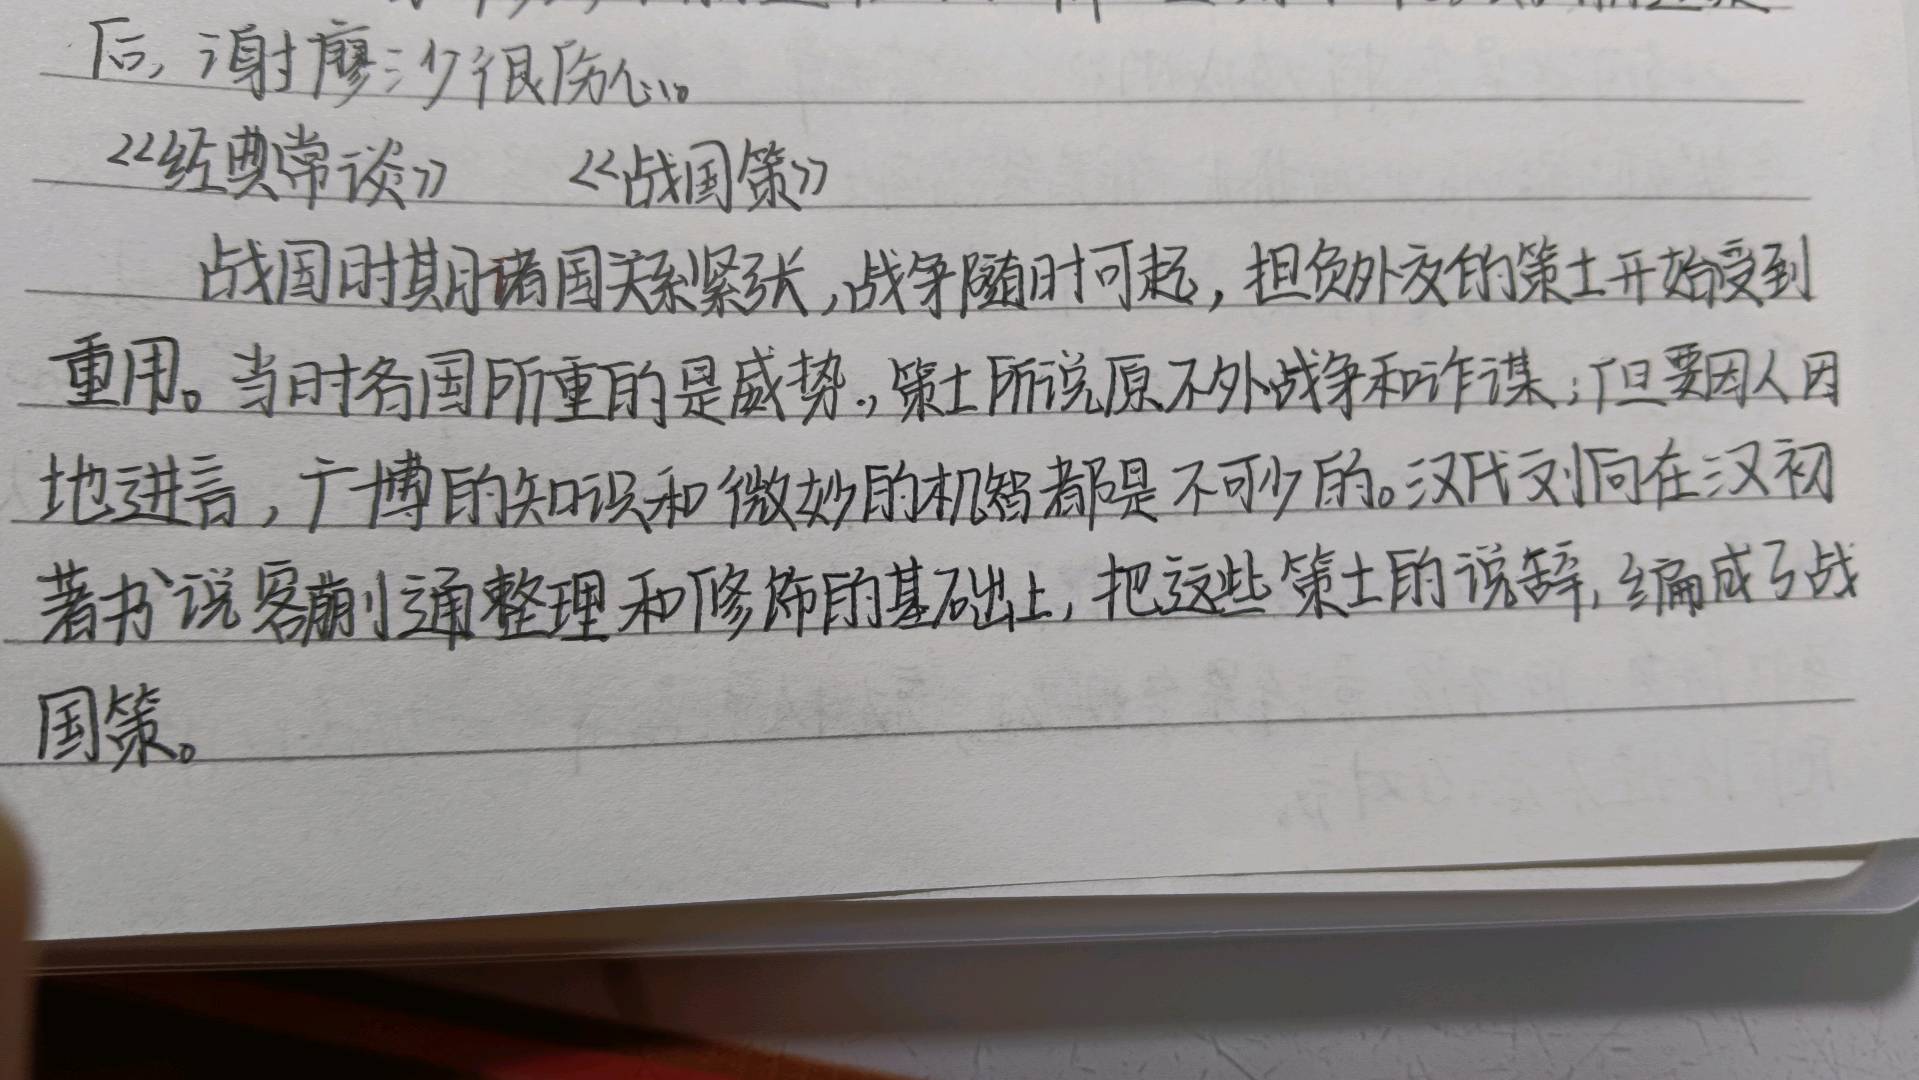 后，谢廖沙很伤心。
《经典常谈》 《战国策》
战国时期诸国关系紧张，战争随时可起，担负外交的策士开始受到
重用。当时各国所重的是威势，策士所说原不外战争和诈谋；但要因人因
地进言，广博的知识和微妙的机智都是不可少的。汉代刘向在汉初
著书说客蒯通整理和修饰的基础上，把这些策士的说辞，编成了战
国策。